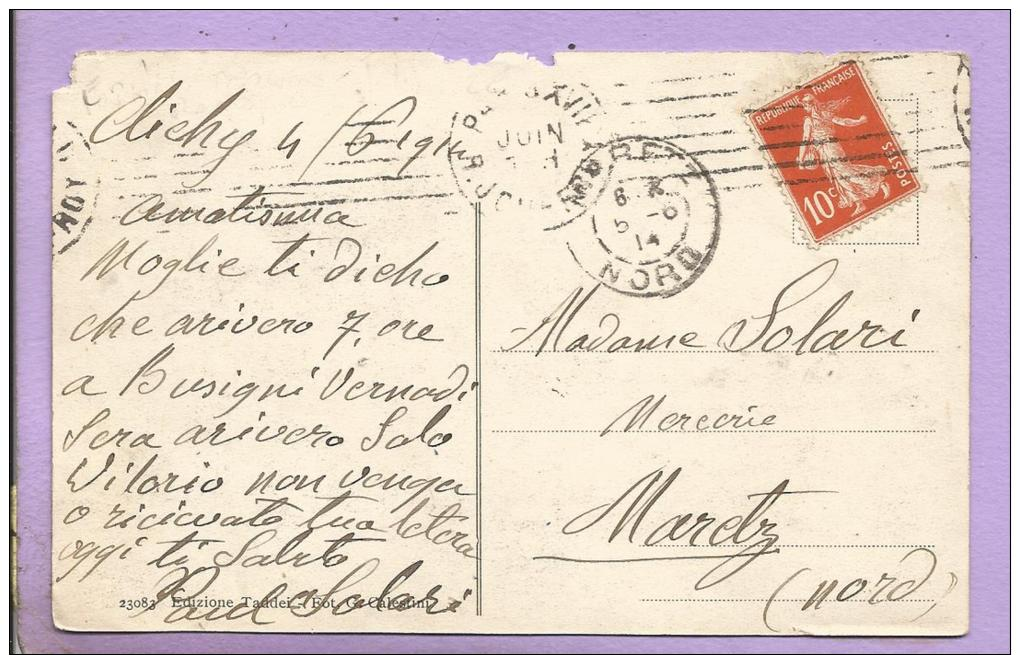 Clichy 4/6 1914
Amatisima
Moglie ti dicho
che arivero 7. ore
a Busigni Vernadi
Sera arivero Solo
Vitorio non venga
o ricievato tua letera
oggi ti Saluto
Paul Solari
23083 Edizione Taddei - Fot. G. Calestini
JUIN
MARETZ
6 -
5 - 6
14
NORD
REPUBLIQUE FRANÇAISE
POSTES
10c
Madame Solari
Mercerie
Maretz
(nord)